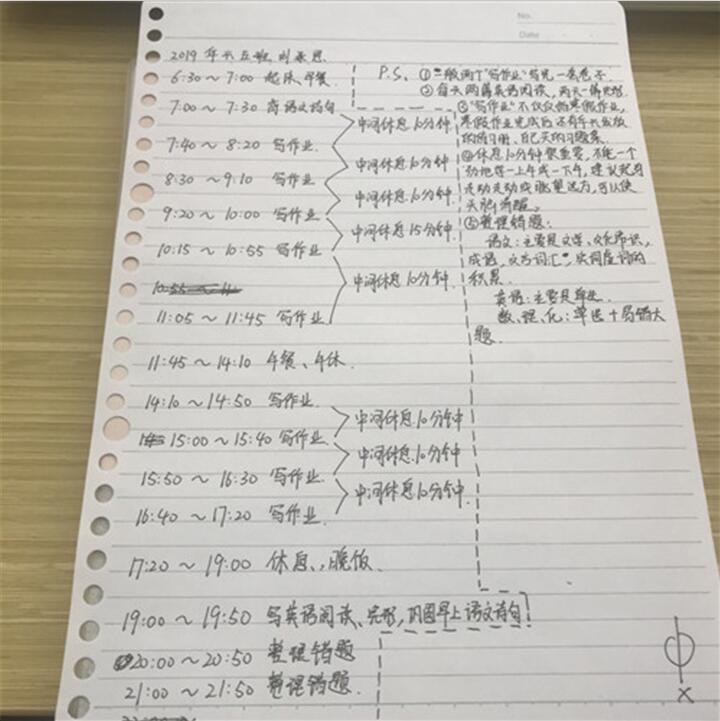 No.
Date
2019 年
6:30～7:00 起床、早餐
7:00～7:30 背语文诗句
中间休息10分钟
7:40～8:20 写作业.
中间休息10分钟
8:30～9:10 写作业
中间休息10分钟.
9:20～10:00 写作业
中间休息15分钟.
10:15～10:55 写作业
中间休息10分钟.
11:05～11:45 写作业
11:45～14:10 午餐、午休.
14:10～14:50 写作业.
中间休息10分钟
15:00～15:40 写作业
中间休息10分钟
15:50～16:30 写作业
中间休息10分钟
16:40～17:20 写作业
17:20～19:00 休息、晚饭.
19:00～19:50 写英语阅读、完形,巩固早上语文诗句!
20:00～20:50 整理错题
21:00～21:50 整理错题.
P.S. ①一般两个“写作业”写完一套卷子.
②每天两篇英语阅读,两天一篇完形
③“写作业”不仅仅做寒假作业,
寒假作业完成后还有年大发放
的练习册、自己买的习题集.
④休息10分钟很重要,不能一个
劲地学一上午或一下午,建议起身
走动走动或眺望远方,可以使
头脑清醒.
⑤整理错题:
语文:主要是文学、文化常识,
成语,文言词汇 实词虚词的
积累.
英语:主要是单选.
数、理、化:单选+局错大
题.